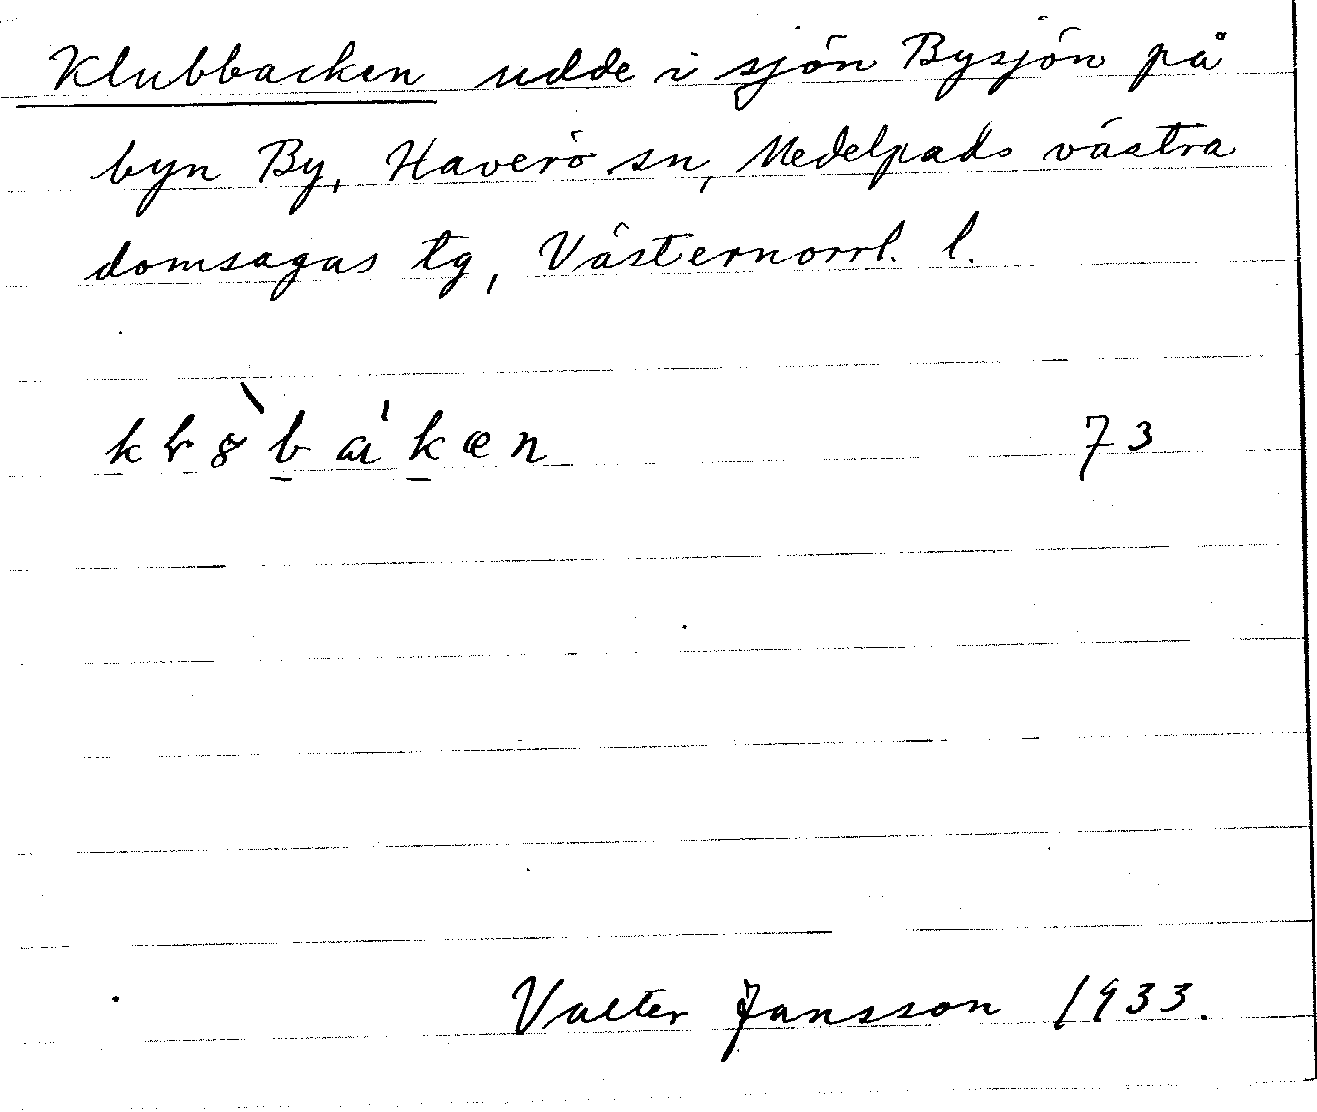 Klubbacken udde i sjön Bysjön på
byn By, Haverö sn, Medelpads västra
domsagas tg, Västernorrl. l.
73
Valter Jansson 1933.